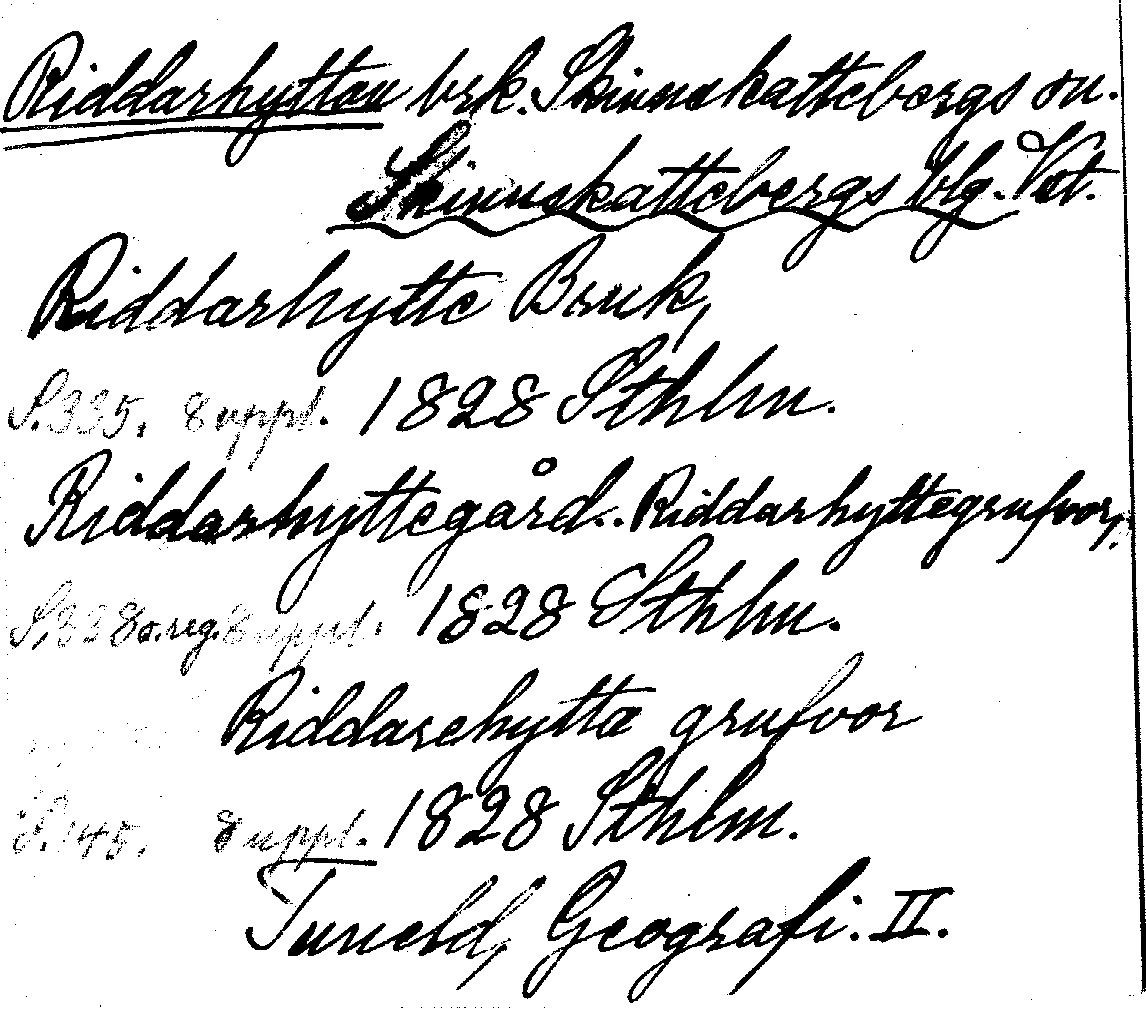 Riddarhyttan brk. Skinnskattebergs sn.
Skinnskattebergs blg. Vst.
Riddarhytte Bruk,
S.335. 8 uppl. 1828 Sthlm.
Riddarhyttegård. Riddarhyttegrufvor,
S.338 o. reg. 8 uppl. 1828 Sthlm.
Riddarehytte grufvor
S.145. 8 uppl. 1828 Sthlm.
Tuneld, Geografi. II.